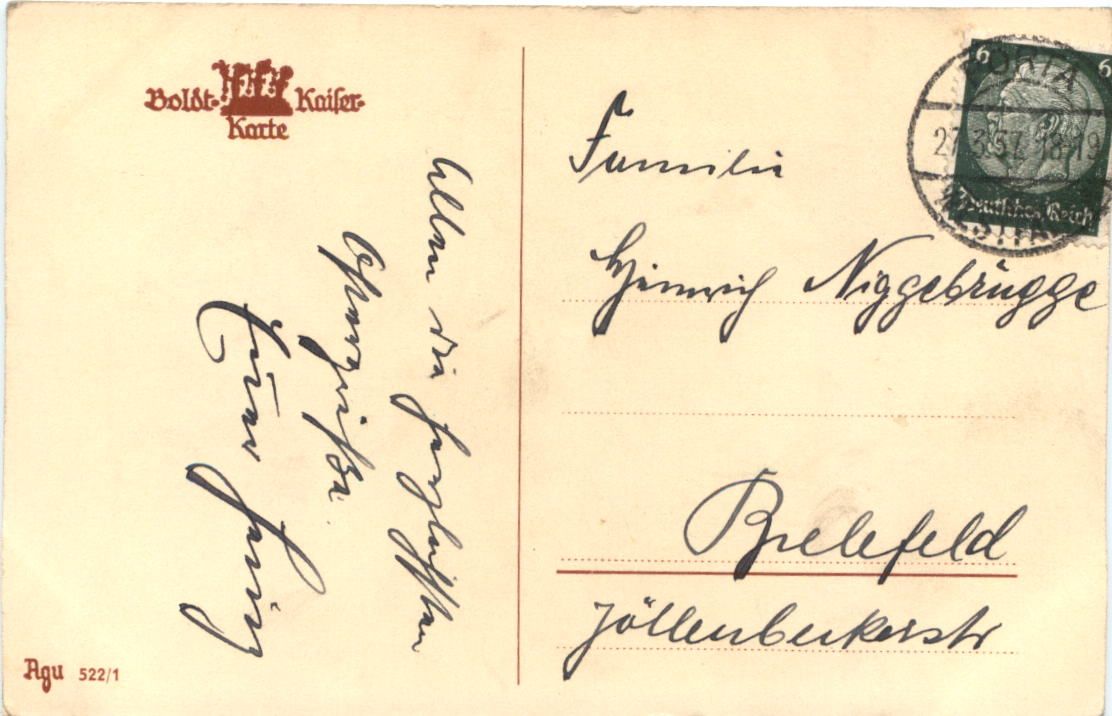 Boldt- Kaiser-
Karte
Allen die herzlichsten
Ostergrüße.
Familie
Heinrich Niggebrügge
Bielefeld
Jöllenbeckerstr
6 6
Deutsches Reich
27.3.37. 18-19
Agu 522/1